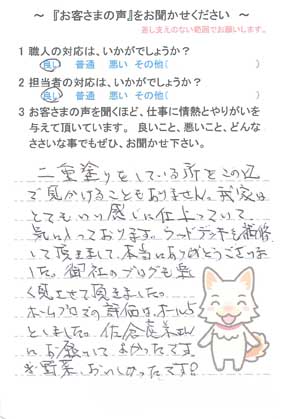 ～ 『お客さまの声』をお聞かせください ～
差し支えのない範囲でお願いします。
1 職人の対応は、いかがでしょうか?
良し 普通 悪い その他( )
2 担当者の対応は、いかがでしょうか?
良し 普通 悪い その他( )
3 お客さまの声を聞くほど、仕事に情熱とやりがいを
与えて頂いています。 良いこと、悪いこと、どんな
ささいな事でもぜひ、お聞かせ下さい。
二重塗りをしている所をこの辺
で見かけることもありません。我家は
とてもいい感じに仕上っていて
気に入っております。ウッドデッキも補修
して頂きまして、本当にありがとうございま
した。御社のブログも楽し
く見させて頂きました。
ホームプロでの評価は、オール5
としました。佐倉
にお願いしてよかったです。
野菜、おいしかったです!